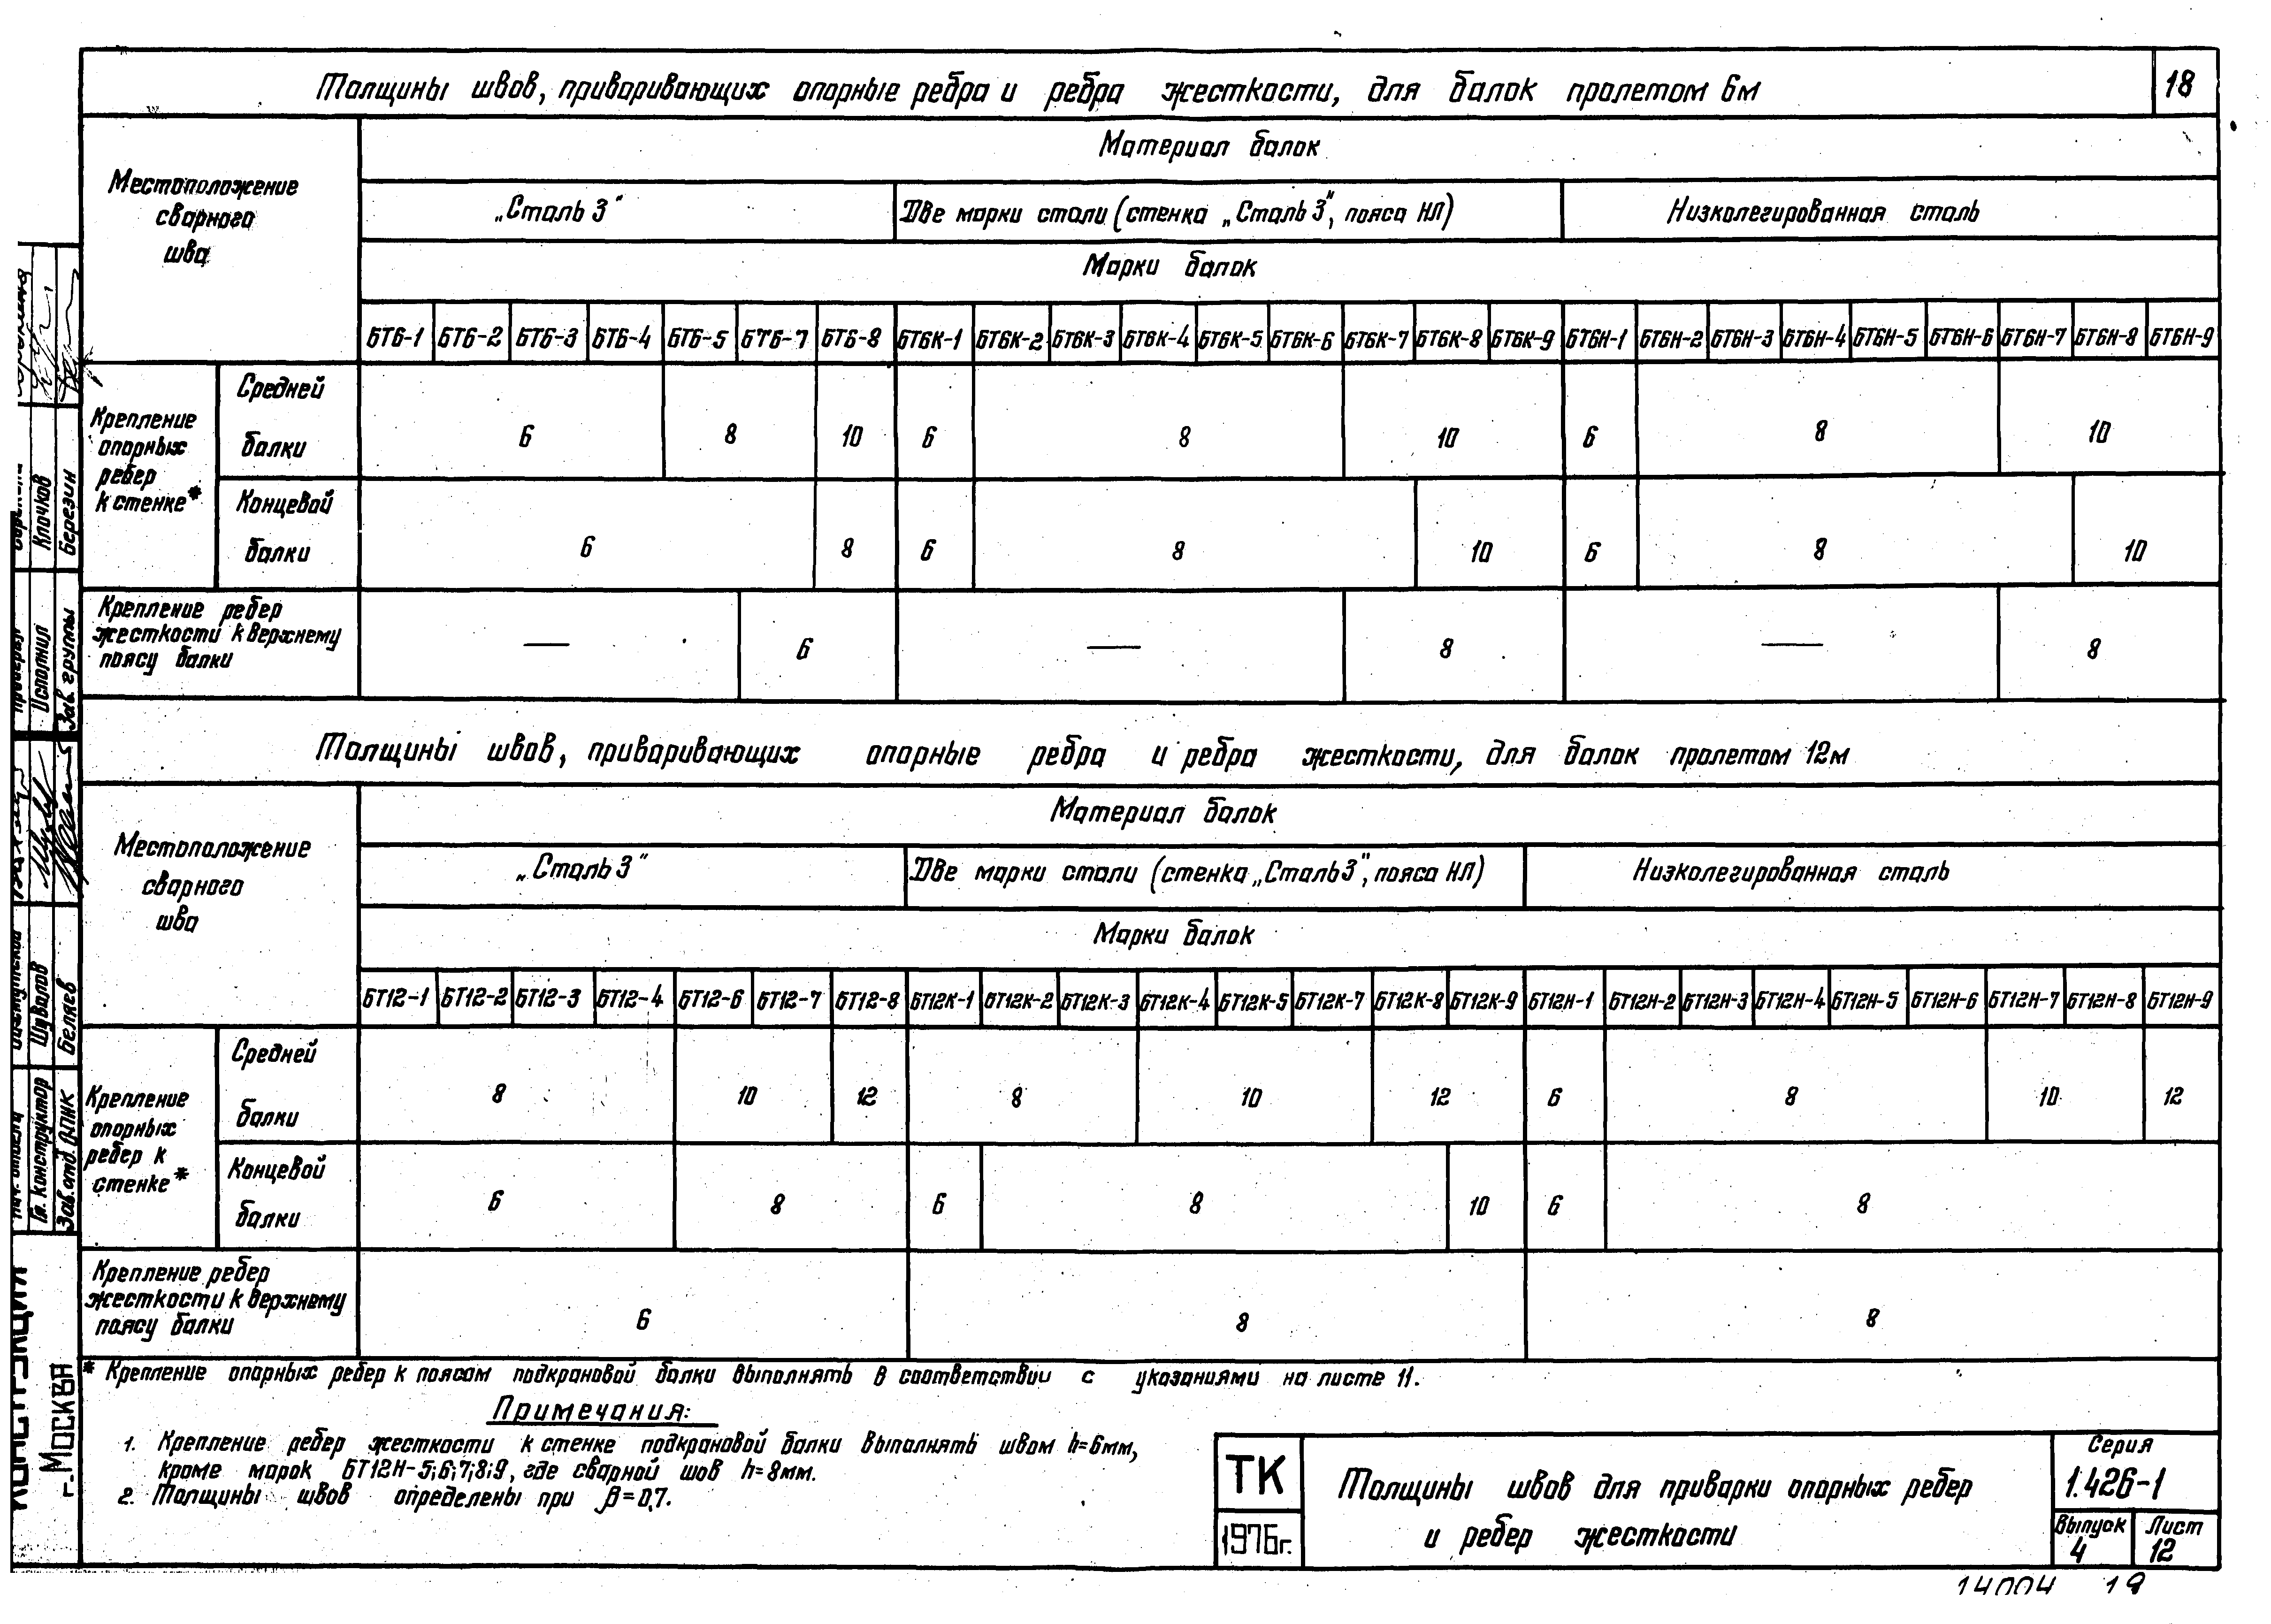 Толщины швов, приваривающих опорные ребра и ребра жесткости, для балок пролетом 6м
18
Местоположение
сварного
шва
Материал балок
„Сталь 3"
Две марки стали (стенка „Сталь 3", пояса НЛ)
Низколегированная сталь
Марки балок
БТ6-1 БТ6-2 БТ6-3 БТ6-4 БТ6-5 БТ6-7 БТ6-8 БТ6К-1 БТ6К-2 БТ6К-3 БТ6К-4 БТ6К-5 БТ6К-6 БТ6К-7 БТ6К-8 БТ6К-9 БТ6Н-1 БТ6Н-2 БТ6Н-3 БТ6Н-4 БТ6Н-5 БТ6Н-6 БТ6Н-7 БТ6Н-8 БТ6Н-9
Крепление
опорных
ребер
к стенке*
Средней
балки
6 8 10 6 8 10 6 8 10
Концевой
балки
6 8 6 8 10 6 8 10
Крепление ребер
жесткости к верхнему
поясу балки
— 6 — 8 — 8
Толщины швов, приваривающих опорные ребра и ребра жесткости, для балок пролетом 12м
Местоположение
сварного
шва
Материал балок
„Сталь 3"
Две марки стали (стенка „Сталь 3", пояса НЛ)
Низколегированная сталь
Марки балок
БТ12-1 БТ12-2 БТ12-3 БТ12-4 БТ12-6 БТ12-7 БТ12-8 БТ12К-1 БТ12К-2 БТ12К-3 БТ12К-4 БТ12К-5 БТ12К-7 БТ12К-8 БТ12К-9 БТ12Н-1 БТ12Н-2 БТ12Н-3 БТ12Н-4 БТ12Н-5 БТ12Н-6 БТ12Н-7 БТ12Н-8 БТ12Н-9
Крепление
опорных
ребер к
стенке*
Средней
балки
8 10 12 8 10 12 6 8 10 12
Концевой
балки
6 8 6 8 10 6 8
Крепление ребер
жесткости к верхнему
поясу балки
6 8 8
* Крепление опорных ребер к поясам подкрановой балки выполнять в соответствии с указаниями на листе 11.
Примечания:
1. Крепление ребер жесткости к стенке подкрановой балки выполнять швом h=6мм,
кроме марок БТ12Н-5;6;7;8;9, где сварной шов h=8мм.
2. Толщины швов определены при β=0,7.
ТК
1976г.
Толщины швов для приварки опорных ребер
и ребер жесткости
Серия
1.426-1
Выпуск
4
Лист
12
14004 19
Исполнил Клочков
Зав. группы Березин
Гл. конструктор Шувалов
Зав. отд. Беляев
г. Москва